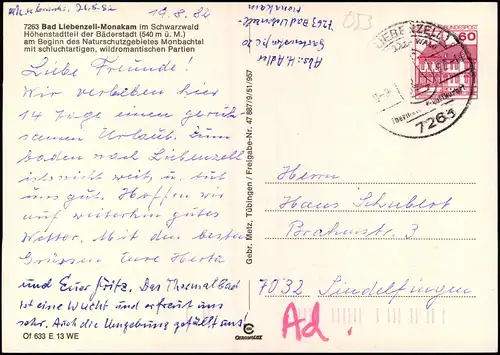 7263 Bad Liebenzell-Monakam im Schwarzwald
Höhenstadtteil der Bäderstadt (540 m ü. M.)
am Beginn des Naturschutzgebietes Monbachtal
mit schluchtartigen, wildromantischen Partien
19.8.82
Liebe Freunde!
Wir verleben hier
14 Tage einen geruh
samen Urlaub. Zum
baden nach Liebenzell
ist nicht weit, u. tut
uns gut. Hoffen wir
auf weiterhin gutes
Wetter. Mit den besten
Grüssen Eure Herta
und Euer Fritz. Das Thermalbad
ist eine Wucht und erfreut uns
sehr. Auch die Umgebung gefällt uns!
Of 633 E 13 WE
Gebr. Metz, Tübingen / Freigabe-Nr. 47 887/9/51/957
Abs.: H. Adler
7263 Bad Liebenzell-
Monakam
LIEBENZELL
7263
60
Herrn
Hans Schubert
Brahmsstr. 3
7032 Sindelfingen
Ad.